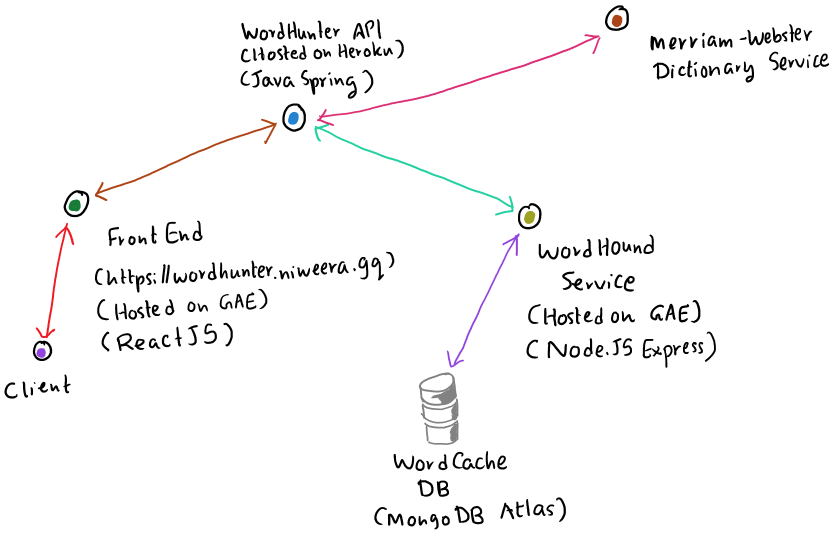 WordHunter API
(Hosted on Heroku)
(Java Spring)
Merriam-Webster
Dictionary Service
Front End
(https://wordhunter.niweera.gq)
(Hosted on GAE)
(ReactJS)
Client
WordHound
Service
(Hosted on GAE)
(Node.JS Express)
WordCache
DB
(MongoDB Atlas)